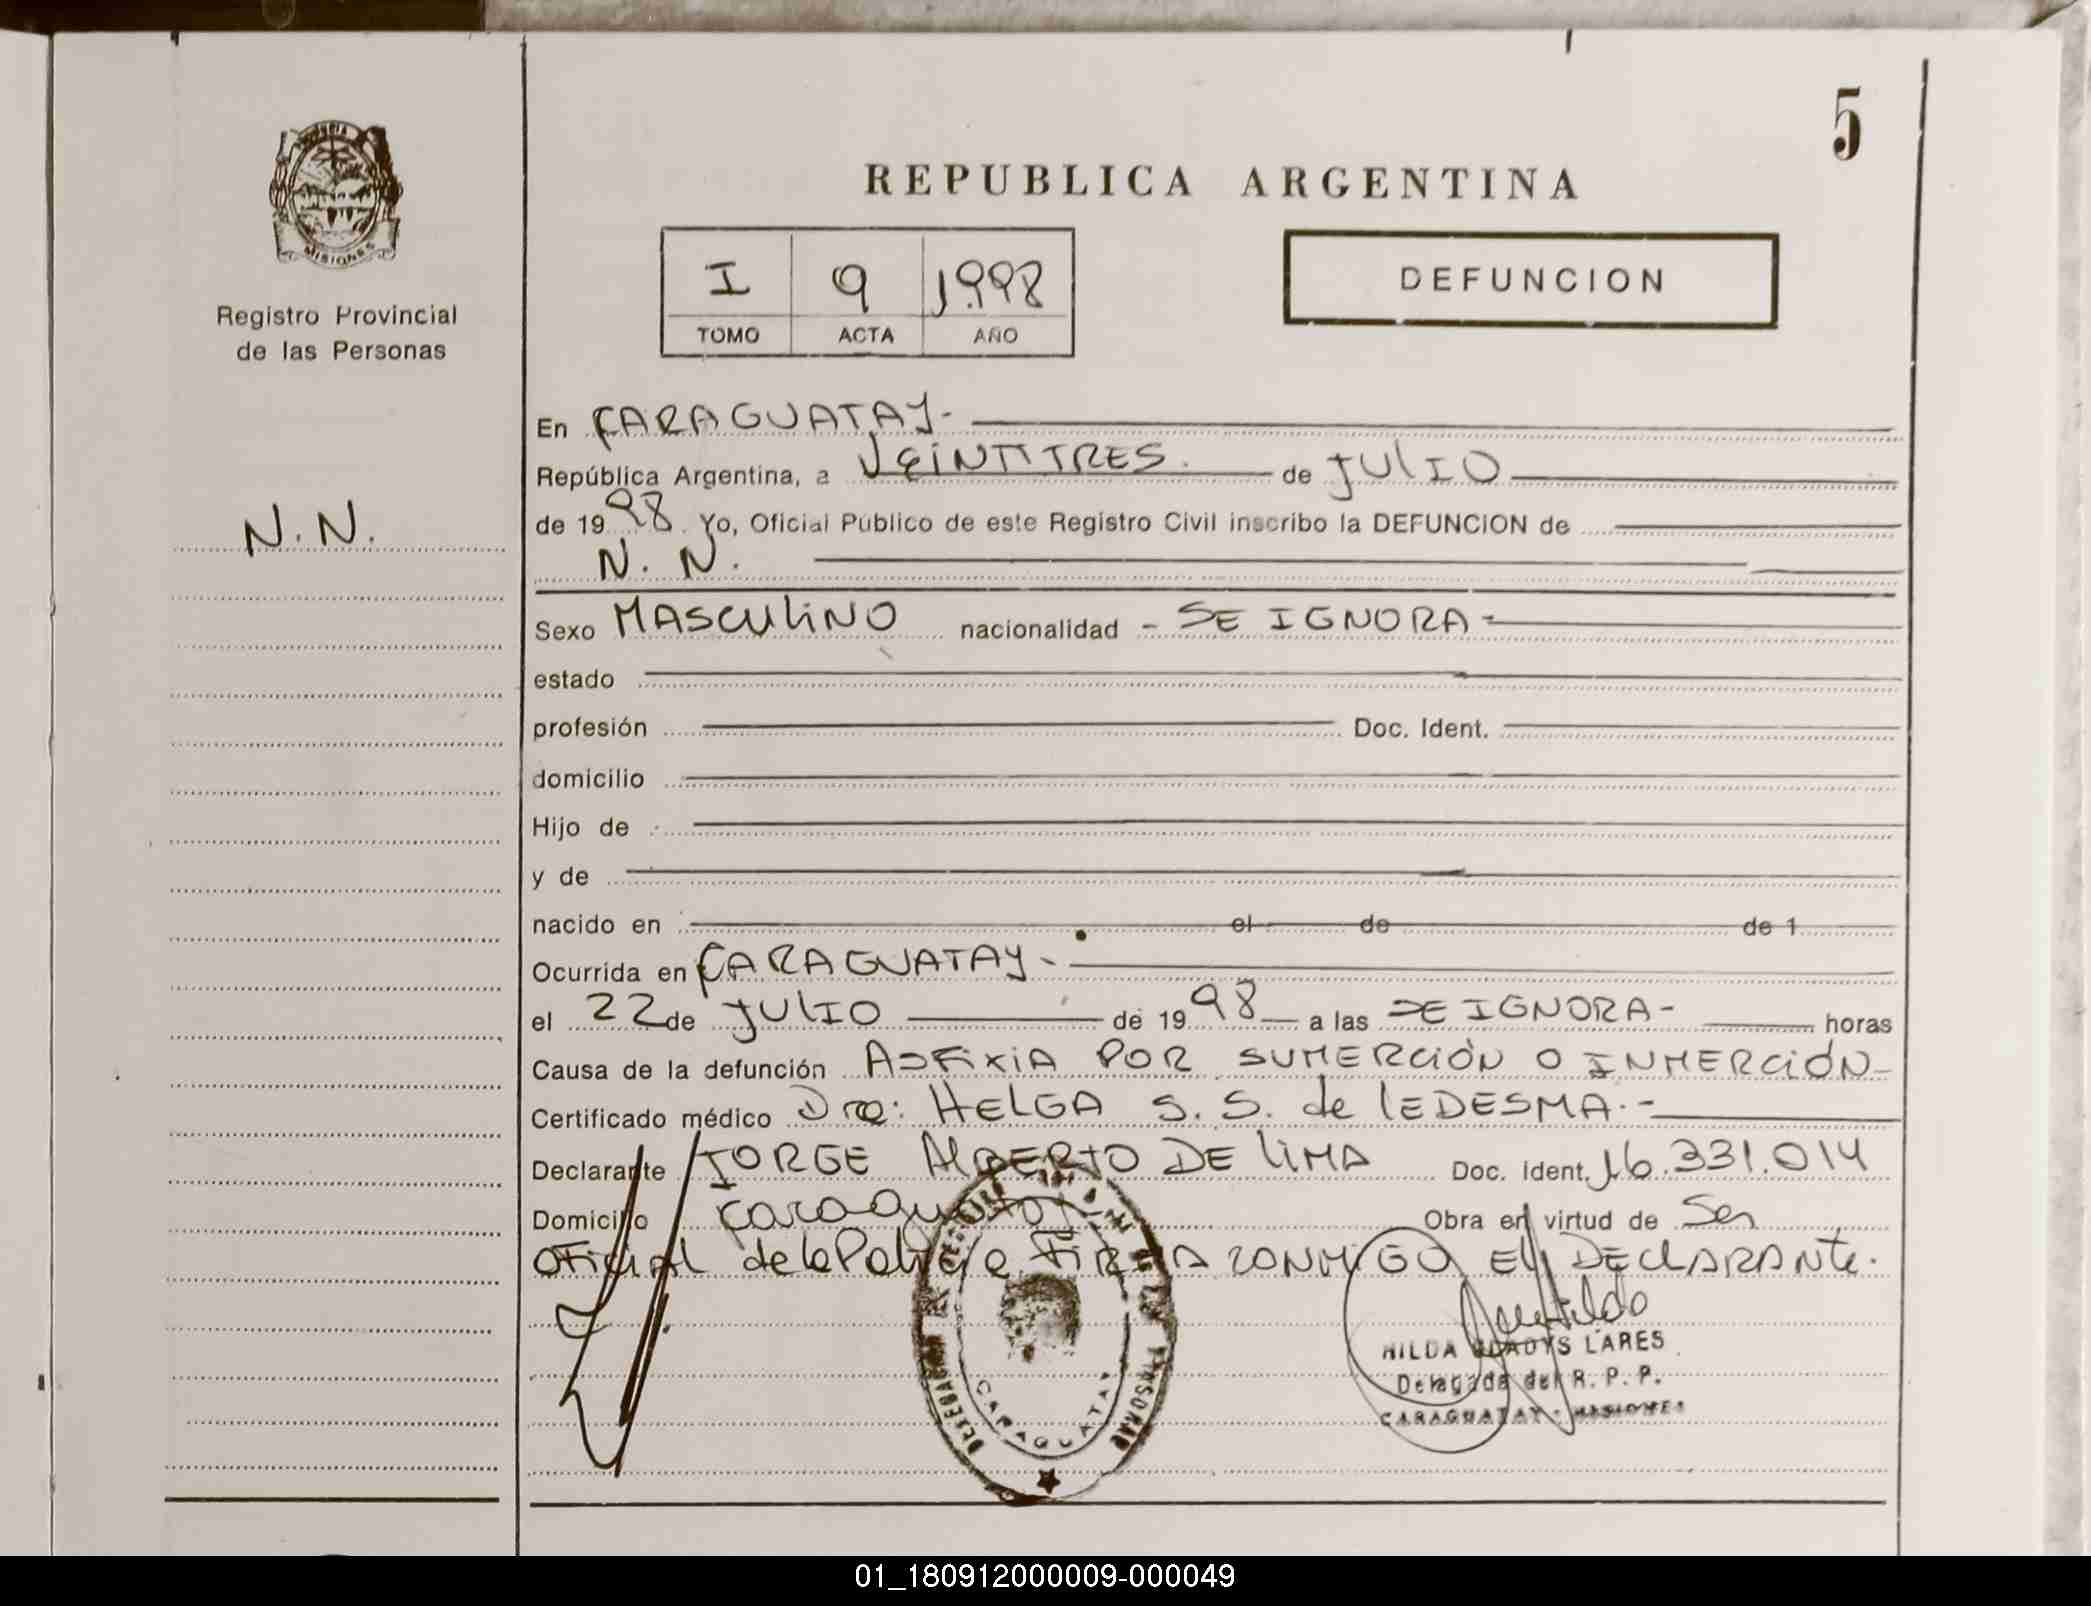 5
REPUBLICA ARGENTINA
MISIONES
Registro Provincial
de las Personas
I 9 1998
TOMO ACTA AÑO
DEFUNCION
N.N.
En CARAGUATAY-
República Argentina, a VEiNTITRES. de JULIO
de 1998. Yo, Oficial Público de este Registro Civil inscribo la DEFUNCION de
N. N.
Sexo MASCULiNO nacionalidad - SE IGNORA-
estado
profesión Doc. Ident.
domicilio
Hijo de
y de
nacido en el de de 1
Ocurrida en CARAGUATAY-
el 22 de JULIO de 1998 a las SE IGNORA- horas
Causa de la defunción ASFiXiA POR SUMERCIÓN O INMERCIÓN-
Certificado médico Dra: HELGA S. S. de LEDESMA.-
Declarante JORGE ALBERTO DE LIMA Doc. Ident. 16.331.014
Domicilio Caraguatay Obra en virtud de Ser
OFICIAL de la Policia FIRMA CONMIGO EL DECLARANTE.
HILDA GLADYS LARES
Delegada del R. P. P.
CARAGUATAY - MISIONES
CARAGUATAY
01_180912000009-000049